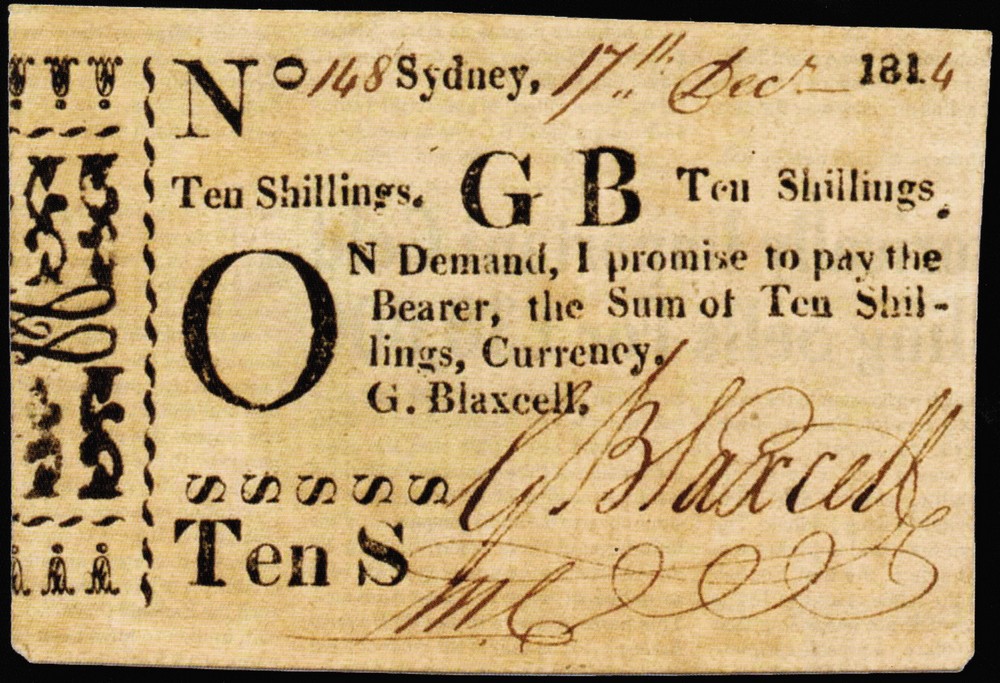 No 148 Sydney, 17th Decr 1814
Ten Shillings. G B Ten Shillings.
ON Demand, I promise to pay the
Bearer, the Sum of Ten Shil-
lings, Currency.
G. Blaxcell.
G Blaxcell
SSSSS
Ten S